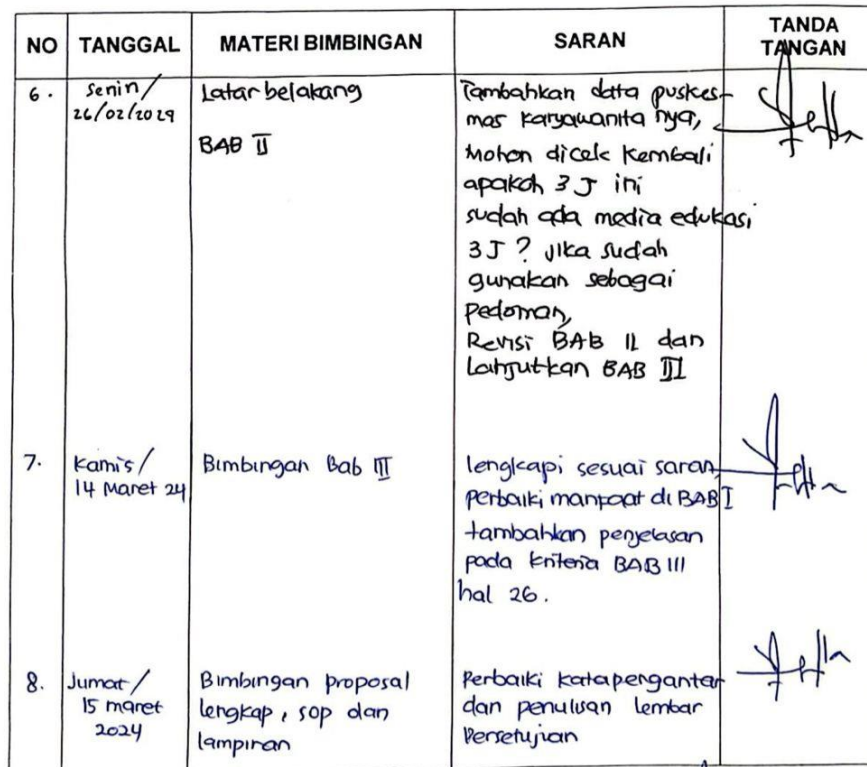 NO TANGGAL MATERI BIMBINGAN SARAN TANDA TANGAN
6. Senin/ 26/02/2024
Latar belakang
BAB II
Tambahkan data puskes-
mas karyawanita nya,
Mohon dicek kembali
apakah 3 J ini
sudah ada media edukasi
3 J ? Jika sudah
gunakan sebagai
pedoman,
Revisi BAB II dan
Lanjutkan BAB III
7. Kamis/ 14 Maret 24
Bimbingan Bab III
lengkapi sesuai saran,
perbaiki manfaat di BAB I
tambahkan penjelasan
pada kriteria BAB III
hal 26.
8. Jumat/ 15 maret 2024
Bimbingan proposal
lengkap, sop dan
lampiran
Perbaiki katapengantar
dan penulisan lembar
Persetujuan